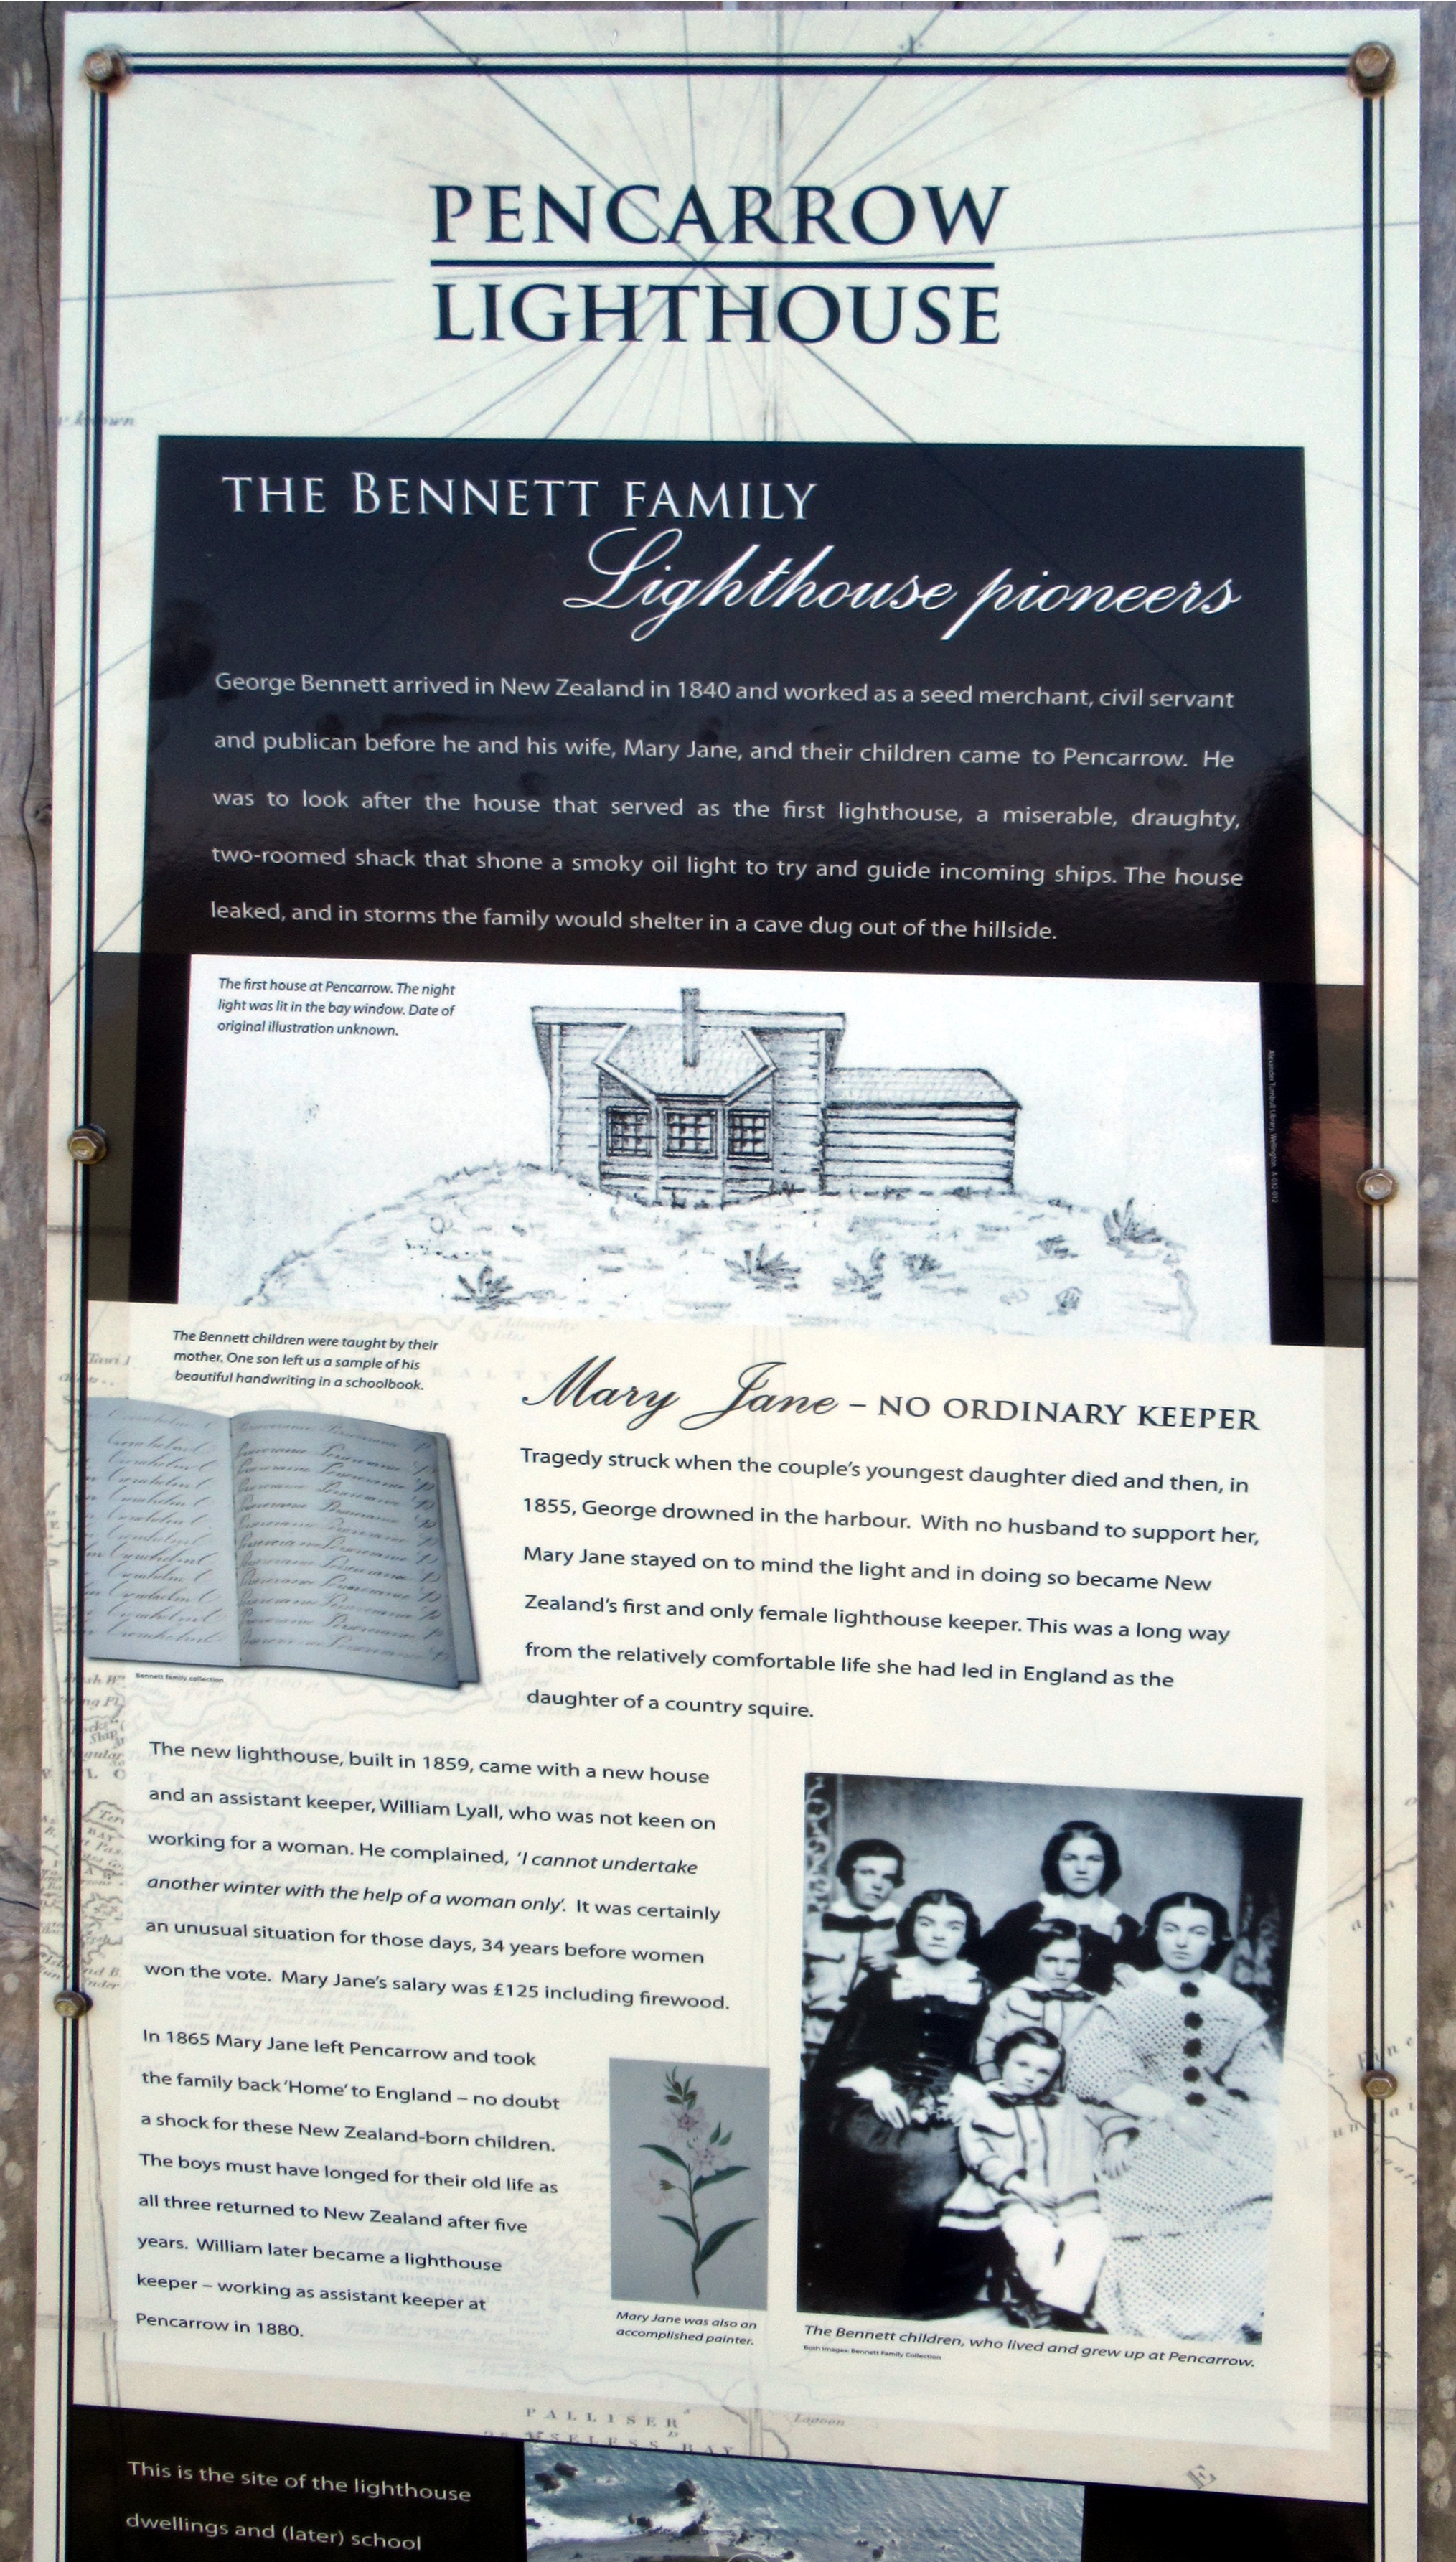 PENCARROW
LIGHTHOUSE
THE BENNETT FAMILY
Lighthouse pioneers
George Bennett arrived in New Zealand in 1840 and worked as a seed merchant, civil servant
and publican before he and his wife, Mary Jane, and their children came to Pencarrow. He
was to look after the house that served as the first lighthouse, a miserable, draughty,
two-roomed shack that shone a smoky oil light to try and guide incoming ships. The house
leaked, and in storms the family would shelter in a cave dug out of the hillside.
The first house at Pencarrow. The night
light was lit in the bay window. Date of
original illustration unknown.
The Bennett children were taught by their
mother. One son left us a sample of his
beautiful handwriting in a schoolbook.
Bennett family collection
Mary Jane – NO ORDINARY KEEPER
Tragedy struck when the couple's youngest daughter died and then, in
1855, George drowned in the harbour. With no husband to support her,
Mary Jane stayed on to mind the light and in doing so became New
Zealand's first and only female lighthouse keeper. This was a long way
from the relatively comfortable life she had led in England as the
daughter of a country squire.
The new lighthouse, built in 1859, came with a new house
and an assistant keeper, William Lyall, who was not keen on
working for a woman. He complained, 'I cannot undertake
another winter with the help of a woman only'. It was certainly
an unusual situation for those days, 34 years before women
won the vote. Mary Jane's salary was £125 including firewood.
In 1865 Mary Jane left Pencarrow and took
the family back 'Home' to England – no doubt
a shock for these New Zealand-born children.
The boys must have longed for their old life as
all three returned to New Zealand after five
years. William later became a lighthouse
keeper – working as assistant keeper at
Pencarrow in 1880.
Mary Jane was also an
accomplished painter.
The Bennett children, who lived and grew up at Pencarrow.
Both images: Bennett Family Collection
PALLISER
Lagoon
This is the site of the lighthouse
dwellings and (later) school